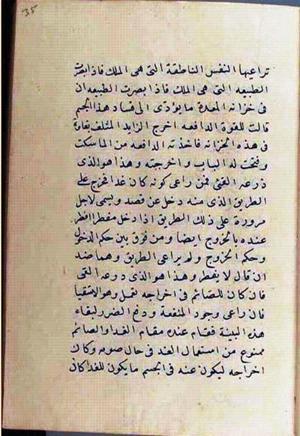 ٣٥
تراعيها النفس الناطقة التى هى الملك فاذا ابصرت
الطبيعه التى هى الملك فاذا ابصرت الطبيعه ان
فى خزانه المعدة ما يؤدى الى فساد هذا الجسم
قالت للقوة الدافعه اخرج الزايد المتلف بقاؤه
فى هذه الخزانه فاخذته الدافعه من الماسكة
وفتحت له الباب واخرجته وهذا هو الذى
ذرعه القئ فمن راعى كونه كان غذا فخرج على
الطريق الذى منه دخل عن قصد ويسمى لاجل
مروره على ذلك الطريق اذا دخل مفطرا افطر
عنده بالخروج ايضا ومن فرق بين حكم الدخول
وحكم الخروج ولم يراعى الطريق وهما ضدان
ان قال لا يفطر وهذا هو الذى ذرعه القئ
فان كان للصائم فى اخراجه تعمل وهو الاستقيا
فان راعى وجود المنفعة ودفع الضرر لبقاء
هذه البنية فقام عنده مقام الغدا والصائم
ممنوع من استعمال الغذا فى حال صومه وكان
اخراجه ليكون عنه فى الجسم ما يكون للغذا كان